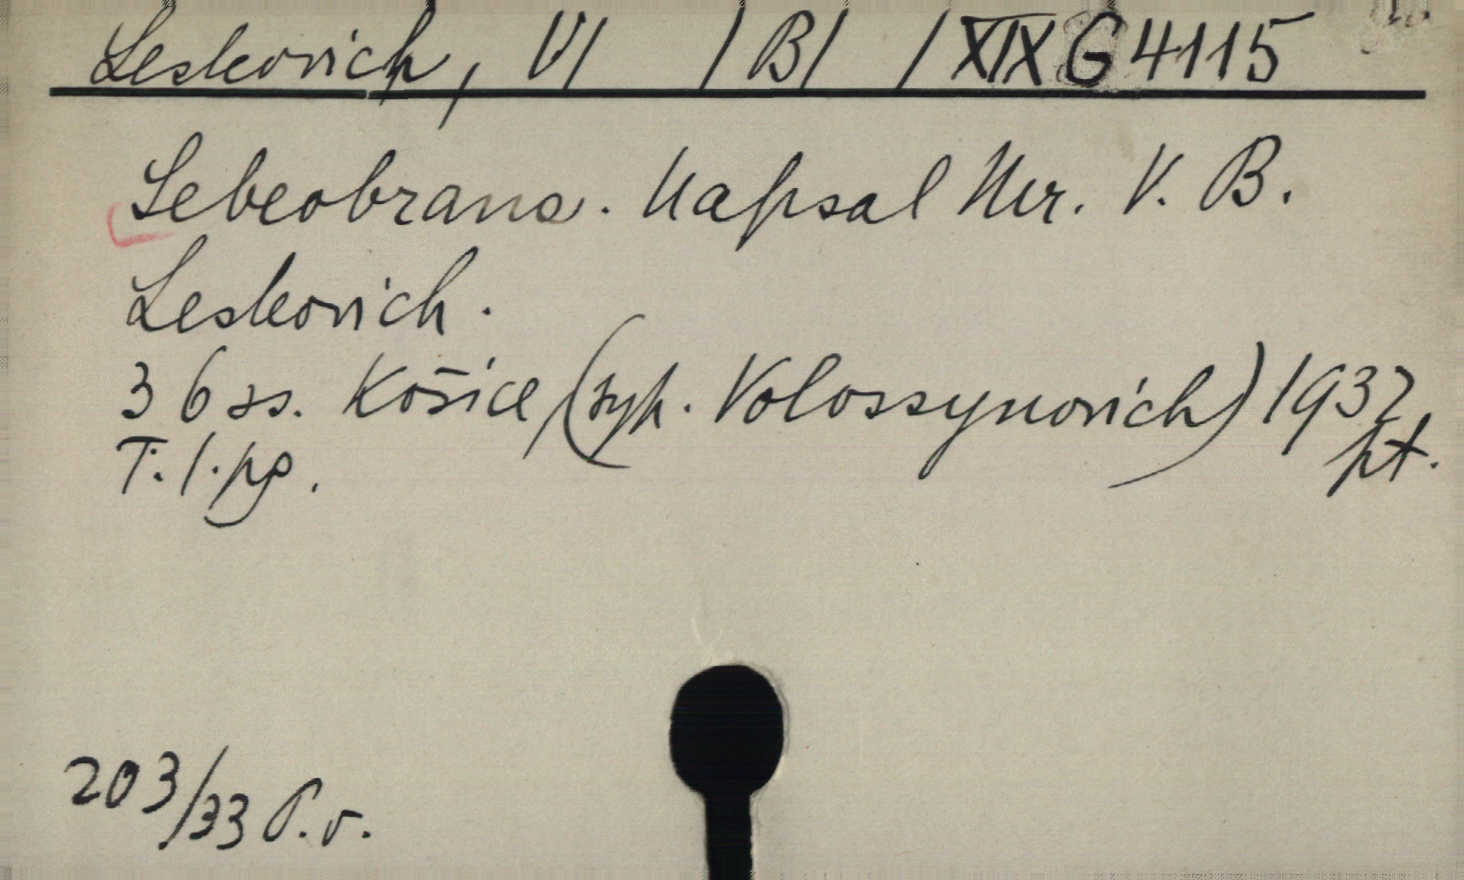 Leskovich, V/ /B/ /XIX G 4115
Sebeobrana. Napsal Mr. V. B.
Leskovich.
36 ss. Košice, (typ. Volossynovich) 1932,
T. 1. pg. pt.
203/33 P. v.